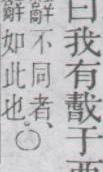 曰我有于西
辭不同者、
辭如此也。○